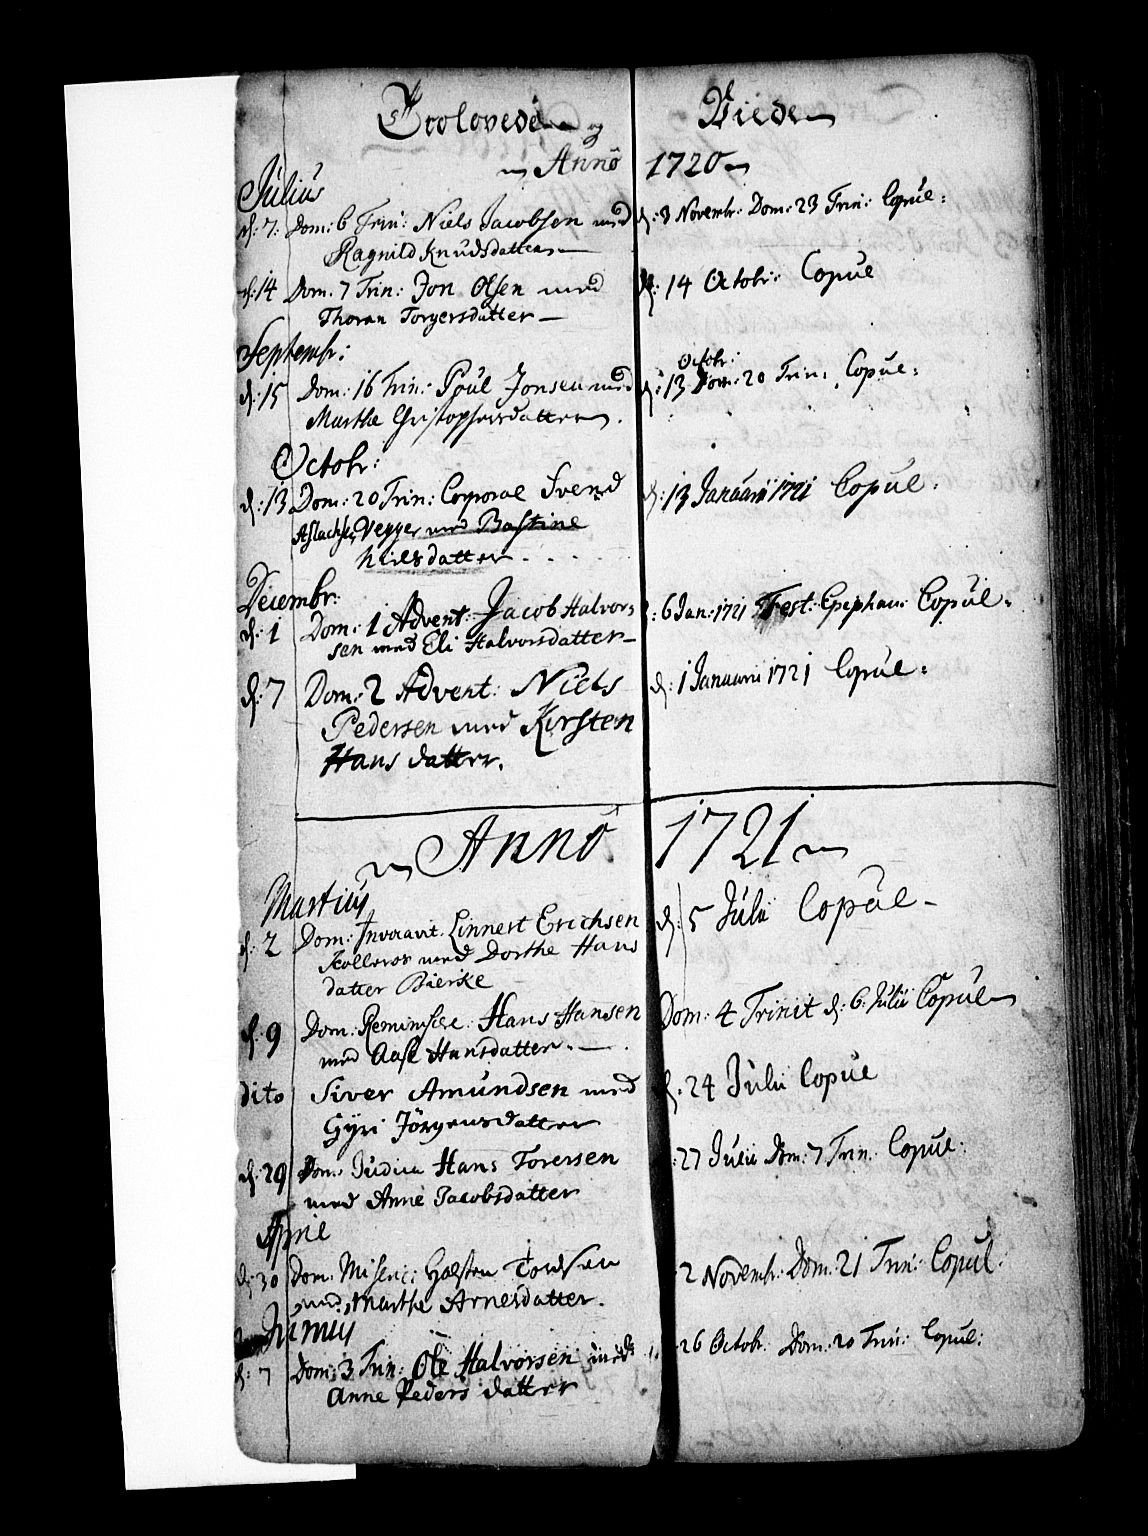 Trolovede og Viede
Anno 1720
Julius
d: 7: Dom: 6 Trin: Niels Jacobsen med d: 3 Novembr: Dom: 23 Trin: Copul:
Ragnild Knudsdatter
d: 14 Dom. 7 Trin: Jon Olsen med d: 14 Octobr: Copul
Thoran Torgersdatter
Septembr:
Octobr:
d. 15 Dom: 16 Trin: Poul Jonsen med d: 13 Dom: 20 Trin: Copul:
Marthe Christophersdatter.
Octobr:
d: 13 Dom: 20 Trin: Corporal Svend d: 13 Januarii 1721 Copul:
Aslachsen Vegger med Bastine
Nielsdatter
Decembr:
d: 1 Dom: 1 Advent: Jacob Halvor= d: 6 Jan: 1721 Fest: Epiphan: Copul:
sen med Eli Halvorsdatter
d: 7 Dom: 2 Advent: Niels d: 1 Januarii 1721 Copul:
Pedersen med Kirsten
Hans datter.
Anno 1721
Martius
d: 2 Dom: Invocavit Linnert Erichsen d: 5 Julii Copul
Kolleros med Dorthe Hans
datter Bierke
d: 9 Dom: Reminisce: Hans Hansen Dom: 4 Trinit d: 6 Julii Copul
med Aase Hansdatter.
dito Siver Amundsen med d. 24 Julii Copul
Gyri Jörgensdatter
d: 29 Dom: Judica Hans Torersen : 27 Julii Dom: 7 Trin: Copul:
med Anne Jacobsdatter
April
d: 30 Dom: Miseric: Halsten Tordsen 2 Novembr: Dom: 21 Trin: Copul:
med Marthe Arnesdatter.
Junius
d: 7 Dom: 3 Trin: Ole Halvorsen med 26 Octobr. Dom: 20 Trin: Copul:
Anne Peders datter